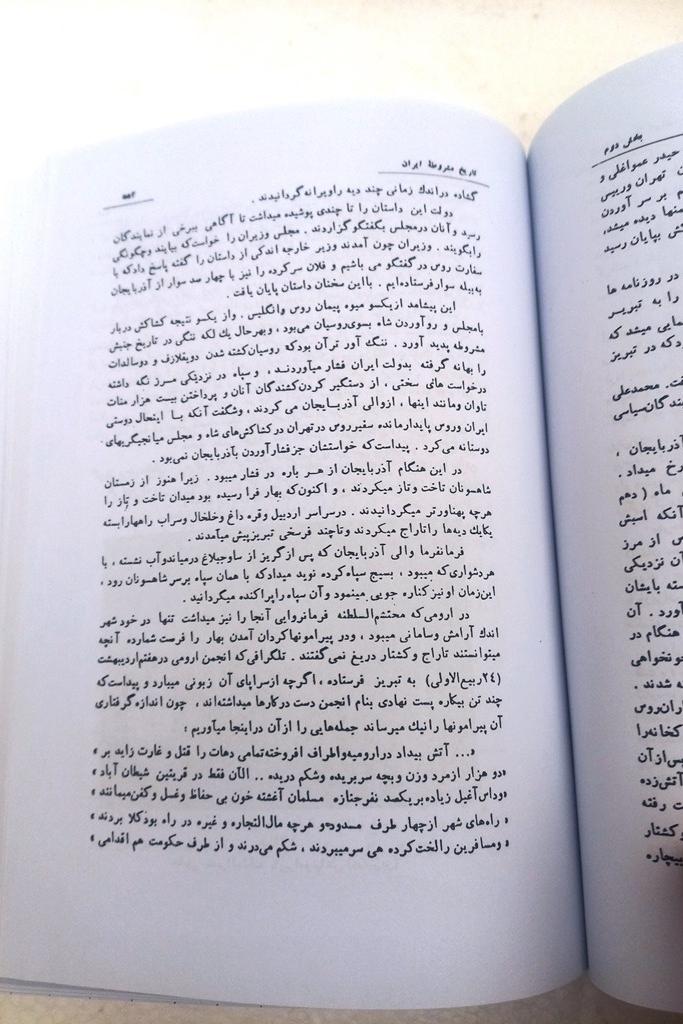 تاریخ مشروطهٔ ایران
گشاده دراندك زمانی چند دیه راویرانه گردانیدند .
دولت این داستان را تا چندی پوشیده میداشت تا آگاهی ببرخی از نمایندگان
رسد و آنان درمجلس بگفتگو گزاردند . مجلس وزیران را خواست که بیایند وچگونگی
رابگویند . وزیران چون آمدند وزیر خارجه اندکی از داستان را گفته پاسخ داد که با
سفارت روس در گفتگو می باشیم و فلان سرکرده را نیز با چهار صد سوار از آذربایجان
به بیله سوار فرستاده‌ایم . بااین سخنان داستان پایان یافت .
این پیشامد ازیکسو میوه پیمان روس وانگلیس . واز یکسو نتیجه کشاکش دربار
بامجلس و روآوردن شاه بسوی روسیان می‌بود ، وبهرحال یك لکه ننگی در تاریخ جنبش
مشروطه پدید آورد . ننگ آور ترآن بود که روسیان کشته شدن دویقلازف و دوسالدات
را بهانه گرفته بدولت ایران فشار میآوردنـد ، و سپاه در نزدیکی مـرز نگه داشته
درخواست های سختی ، از دستگیر کردن کشندگان آنان و پرداختن بیست هزار منات
تاوان ومانند اینها ، ازوالی آذربـایجان می کردند ، وشگفت آنکه بـا اینحال دوستی
ایران وروس پایدارمانده سفیرروس درتهران درکشاکش‌های شاه و مجلس میانجیگریهای
دوستانه می‌کرد . پیداست که خواستشان جزفشارآوردن بآذربایجان نمی‌بود .
در این هنگام آذربایجان از هـر باره در فشار میبود . زیرا هنوز از زمستان
شاهسونان تاخت وتاز میکردند ، و اکنون که بهار فرا رسیده بود میدان تاخت و تاز را
هرچه پهناورتر میگردانیدند . درسراسر اردبیل وقره داغ وخلخال وسراب راهها رابسته
یکایك دیه‌ها را تاراج میکردند وتاچند فرسخی تبریز پیش میآمدند .
فرمانفرما والی آذربایجان که پس از گریز از ساوجبلاغ درمیاندوآب نشسته ، با
هردشواری که میبود ، بسیج سپاه کرده نوید میداد که با همان سپاه برسر شاهسونان رود ،
این‌زمان اونیز کناره جویی مینمود وآن سپاه را پراکنده میگردانید .
در ارومی که محتشم السلطنه فرمانروایی آنجا را نیز میداشت تنها در خود شهر
اندك آرامش وسامانی میبود ، ودر پیرامونها کردان آمدن بهار را فرصت شمارده آنچه
میتوانستند تاراج و کشتار دریغ نمی‌گفتند . تلگرافی که انجمن ارومی درهفتم اردیبهشت
(۲۴ ربیع الاولی) به تبریز فرستاده ، اگرچه ازسراپای آن زبونی میبارد و پیداست که
چند تن بیکاره پست نهادی بنام انجمن دست درکارها میداشته‌اند ، چون اندازه گرفتاری
آن پیرامونها را نیك میرساند جمله‌هایی را ازآن دراینجا میآوریم :
«... آتش بیداد درارومیه واطراف افروخته تمامی دهات را قتل و غارت زاید بر »
«دو هزار ازمرد وزن وبچه سربریده وشکم دریده .. الآن فقط در قریتین شیطان آباد »
«وداس آغیل زیاده بریکصد نفرجنازه مسلمان آغشته خون بی حفاظ وغسل وکفن میمانند »
« راه‌های شهر ازچهار طرف مسدود و هرچه مال‌التجاره و غیره در راه بود کلا بردند »
« ومسافرین رالخت کرده هی سرمیبردند ، شکم می‌درند و از طرف حکومت هم اقدامی »
بخش دوم
حیدر عمواغلی و
تهران ورییس
بر سر آوردن
دیده میشد،
بپایان رسید
در روزنامه ها
را به تبریز
میشد که
که در تبریز
محمدعلی
سیاسی
آذربایجان ،
رخ میداد .
ماه ( دهم
آنکه اسبش
از مرز
آن نزدیکی
بایشان
آورد . آن
هنگام در
خونخواهی
شدند .
روس
را
آن
زده
رفته
و کشتار
بیچاره